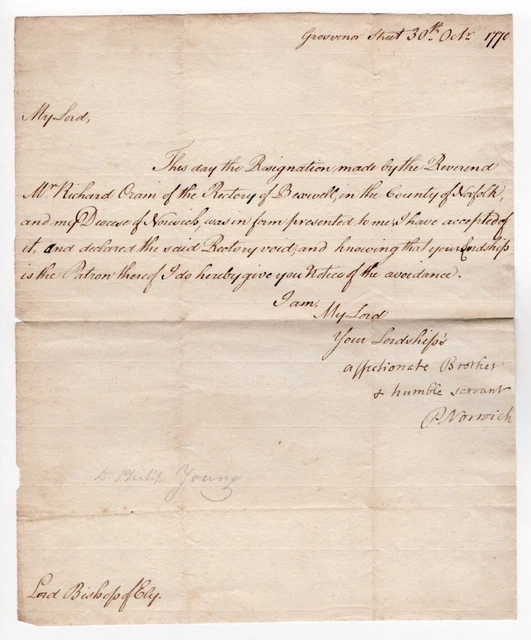 Grosvenor Street 30th. Octr. 1770
My Lord,
This day the Resignation, made by the Reverend
Mr Richard Oram of the Rectory of Bexwell, in the County of Norfolk,
and my Diocese of Norwich, was in form presented to me; I have accepted of
it, and declared the said Rectory void; and knowing that your Lordship
is the Patron thereof I do hereby give you Notice of the avoidance.
I am,
My Lord
Your Lordship's
affectionate Brother
& humble servant
P. Norwich
Dr Philip Young
Lord Bishop of Ely.